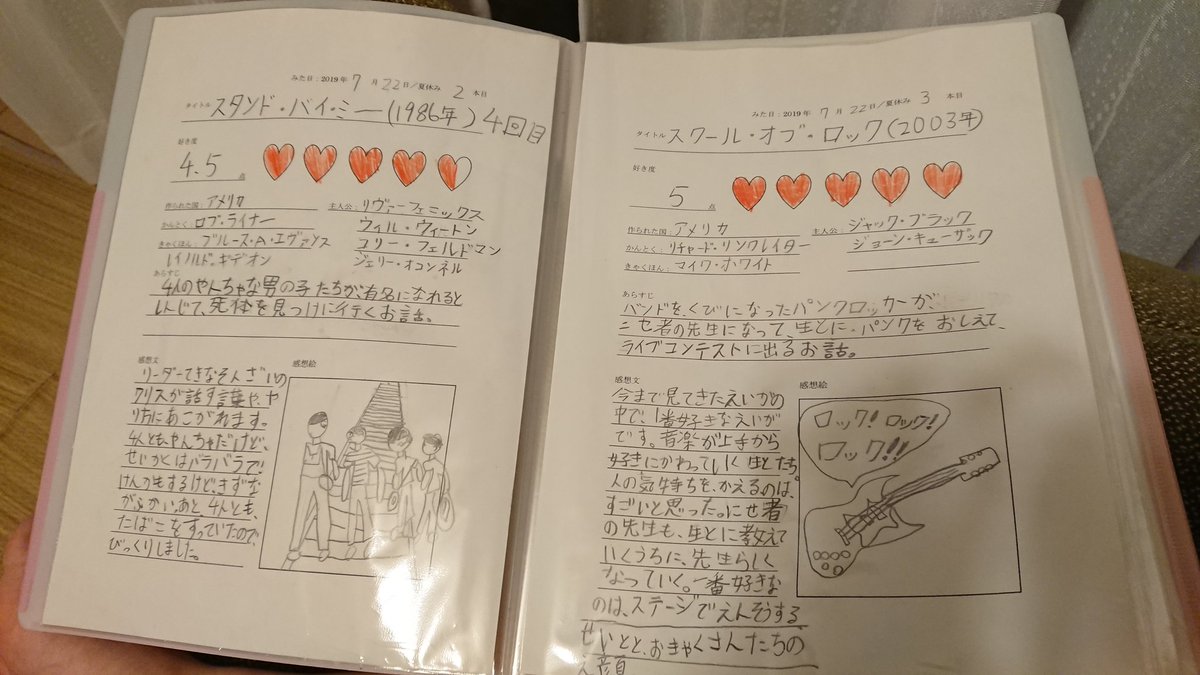 みた日：2019年 7月 22日／夏休み 2 本目
タイトル スタンド・バイ・ミー(1986年) 4回目
好き度
4.5 点
作られた国：アメリカ
主人公：リヴァーフェニックス
かんとく：ロブ・ライナー
ウィル・ウィートン
きゃくほん：ブルース・A・エヴァンス
コリー・フェルドマン
レイノルド。ギデオン
ジェリー・オコンネル
あらすじ
4人のやんちゃな男の子たちが、有名になれると
しんじて、死体を見つけに行くお話。
感想文
リーダーてきなそんざいの
クリスが話す言葉や、や
り方にあこがれます。
4人ともやんちゃだけど、
せいかくはバラバラで!
けんかもするけど、きずな
がふかい。あと、4人とも、
たばこをすっていたので、
びっくりしました。
感想絵
みた日：2019年 7月 22日／夏休み 3 本目
タイトル スクール・オブ・ロック(2003年)
好き度
5 点
作られた国：アメリカ
主人公：ジャック・ブラック
かんとく：リチャード・リンクレイター
ジョーン・キューザック
きゃくほん：マイク・ホワイト
あらすじ
バンドを、くびになったパンクロッカーが、
ニセ者の先生になって、生とに、パンクを おしえて、
ライブコンテストに出るお話。
感想文
今まで見てきたえいがの
中で、1番好きなえいが
です。音楽が上手から
好きにかわっていく生とたち
人の気持ちを、かえるのは、
すごいと思った。にせ者
の先生も、生とに教えて
いくうちに、先生らしく
なっていく。一番好きな
のは、ステージでえんそうする
せいとと、おきゃくさんたちの
顔
感想絵
ロック! ロック!
ロック!!